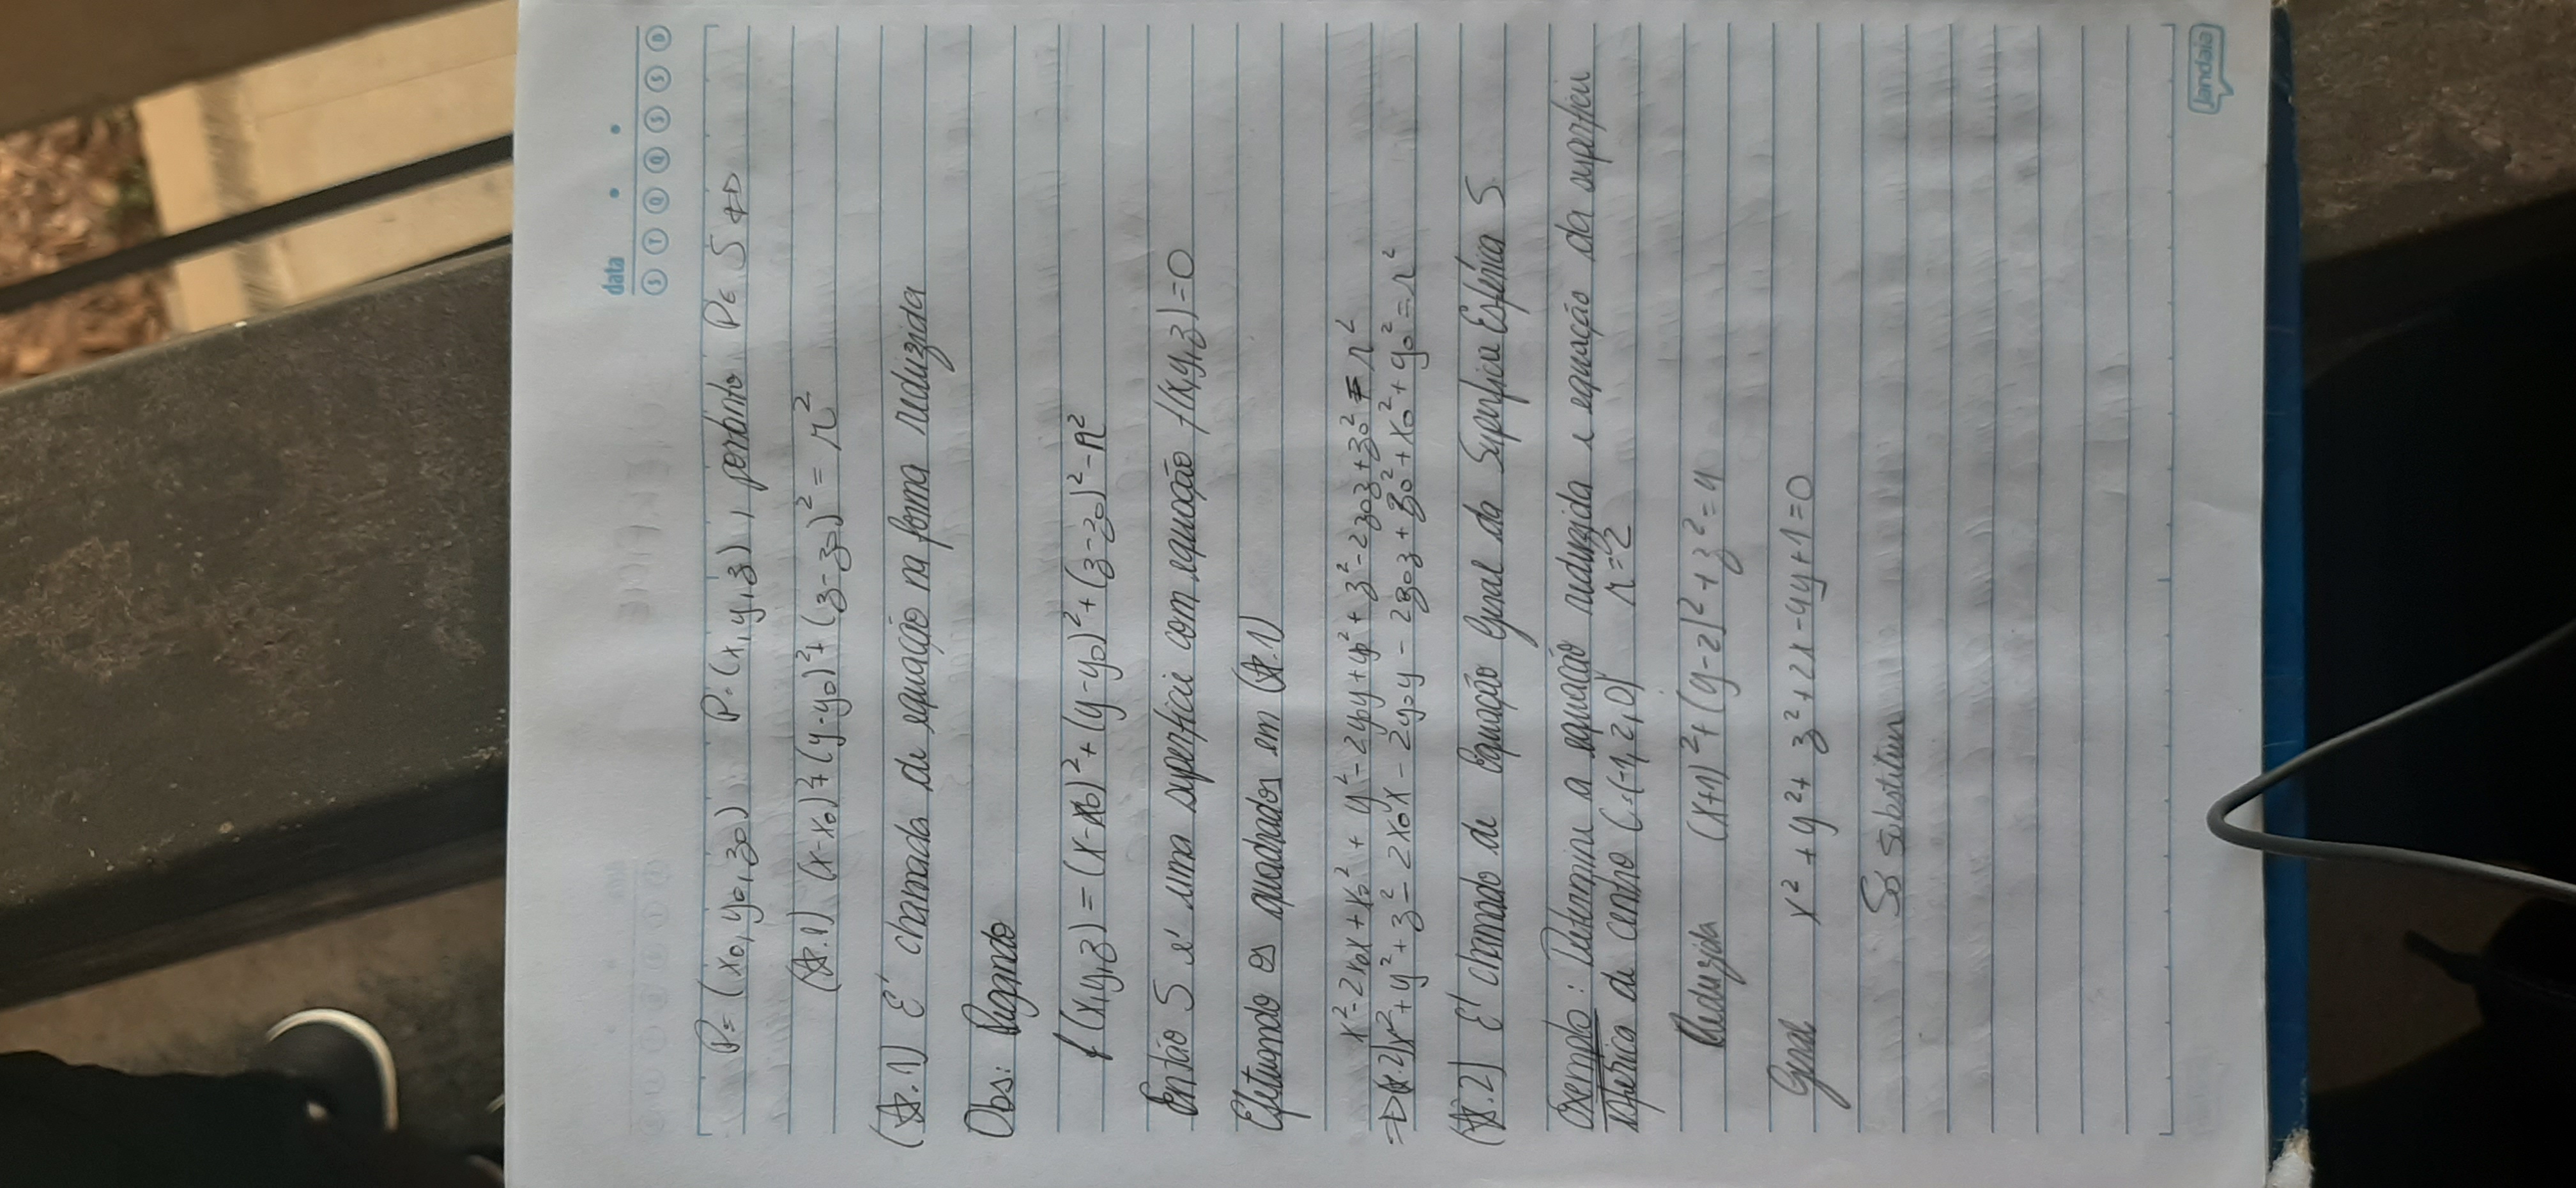 data
S T Q Q S S D
P= (x₀, y₀, z₀) P=(x, y, z), portanto P∈ S ⇔
(☆.1) (x-x₀)²+(y-y₀)²+(z-z₀)² = r²
(☆.1) É chamada de equação na forma reduzida
Obs: Pegando
f(x,y,z) = (x-x₀)²+(y-y₀)²+(z-z₀)²-r²
Então S é uma superficie com equação f(x,y,z)=0
Efetuando os quadrados em (☆.1)
x²-2x₀x+x₀² + y²-2y₀y+y₀²+z²-2z₀z+z₀² = r²
⇒(☆.2)x²+y²+z²-2x₀x-2y₀y-2z₀z+z₀²+x₀²+y₀²=r²
(☆.2) É chamado de Equação Geral da Superfica Esférica S
Exemplo: Determine a equação reduzida e equação da superficie
esferica de centro C=(-1,2,0) r=2
Reduzida (x+1)²+(y-2)²+z²=4
Geral x²+y²+z²+2x-4y+1=0
Só substituir
jandaia